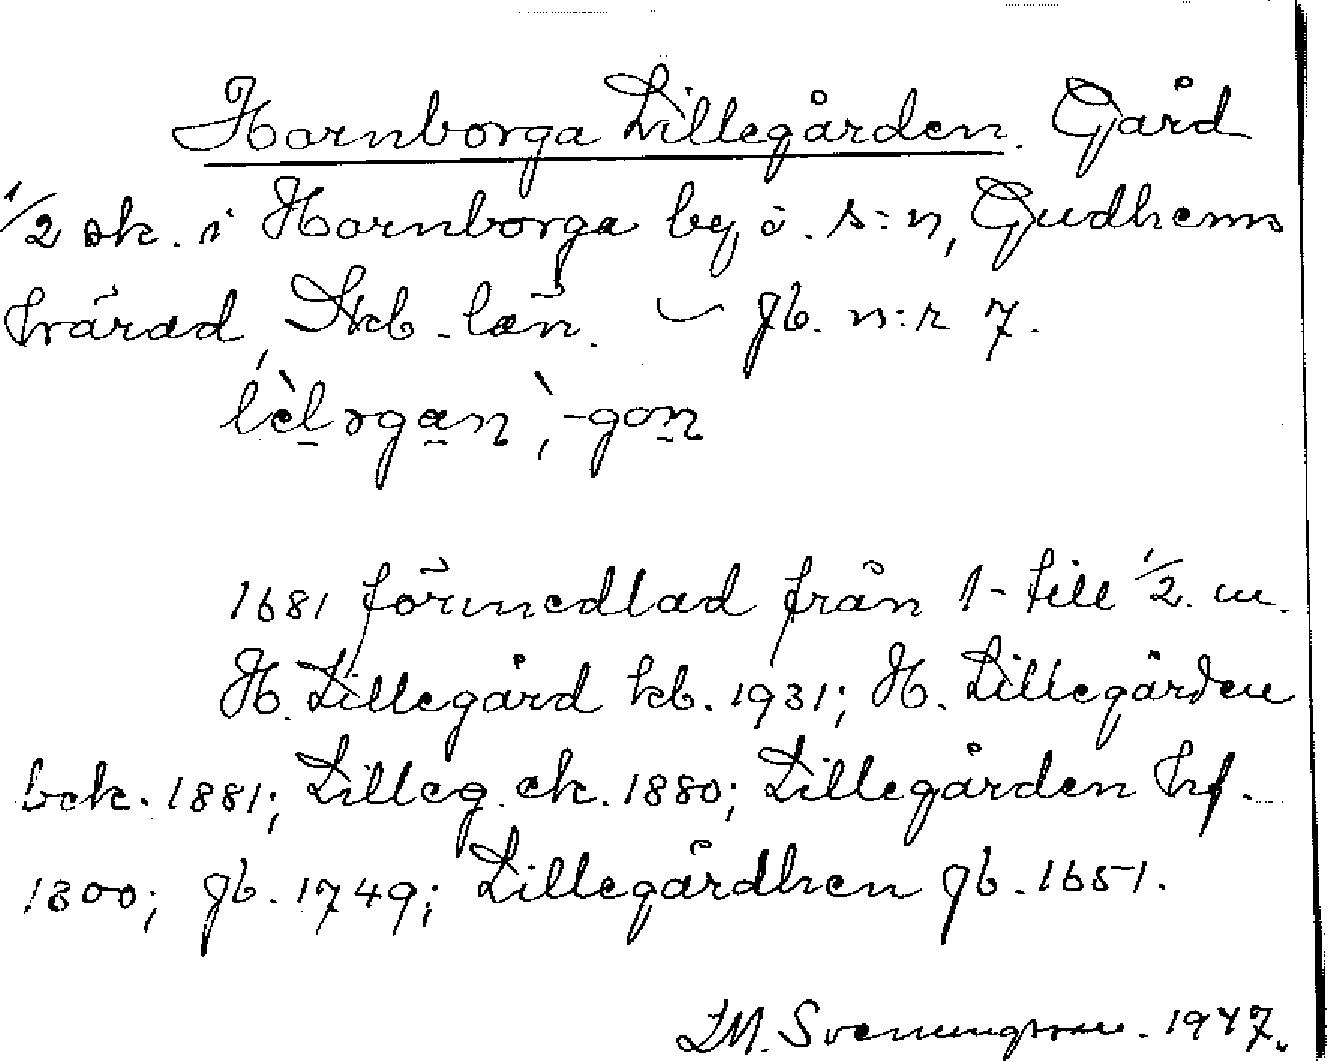 Hornborga Lillegården. Gård
1/2 sk. i Hornborga by o. s:n, Gudhems
härad, Skb. län. – Jb. n:r 7.
lèlərgan`, -gon
1681 förmedlad från 1- till 1/2. m.
H. Lillegård kb. 1931; H. Lillegården
bek. 1881; Lilleg. ek. 1880; Lillegården hf.
1800; Jb. 1749; Lillegårdhen Jb. 1651.
LM. Svenungsson. 1947.